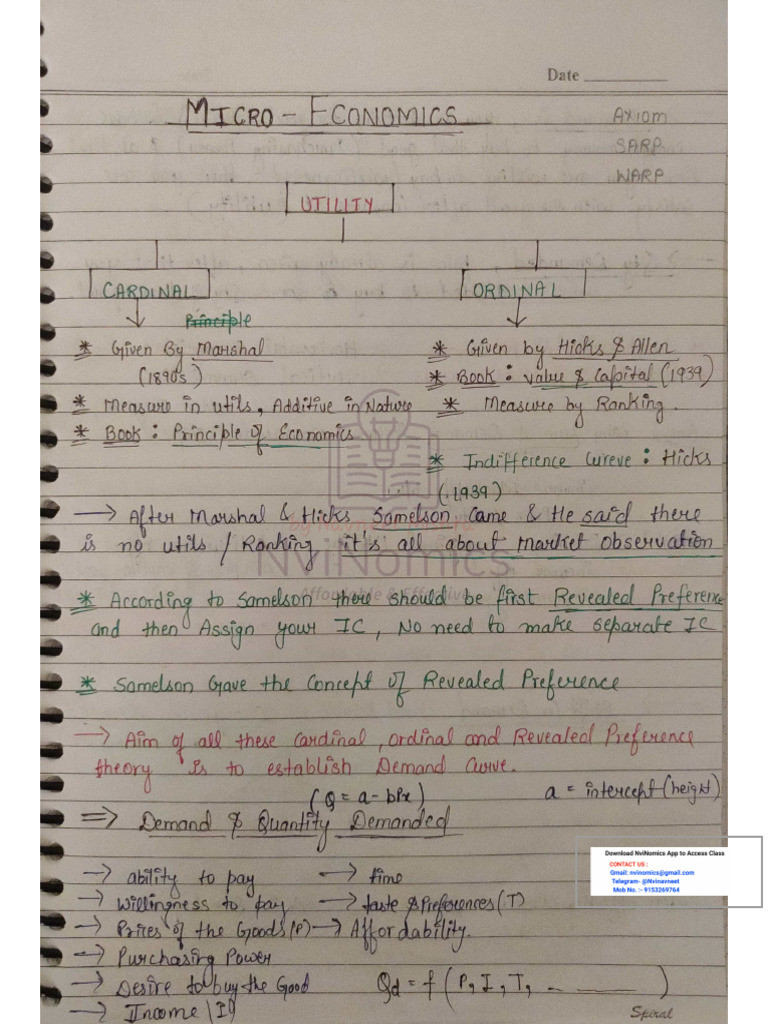 Date
MICRO-ECONOMICS
AXIOM
SARP
WARP
UTILITY
CARDINAL
ORDINAL
Principle
* Given By Marshal
(1890s)
* Measure in utils, Additive in Nature
* Book : Principle of Economics
* Given by Hicks & Allen
* Book : Value & Capital (1939)
* Measure by Ranking.
* Indifference Cureve : Hicks
(1939)
→ After Marshal & Hicks Samelson came & He said there
is no utils / Ranking it's all about market observation
NviNomics
Affordable & Effective
* According to Samelson there should be first Revealed Preference
and then Assign your IC, No need to make separate IC
* Samelson Gave the Concept of Revealed Preference
→ Aim of all these Cardinal, ordinal and Revealed Preference
theory Is to establish Demand Curve.
(Q = a - bPx)
a = intercept (height)
⇒ Demand & Quantity Demanded
→ ability to pay → time
→ Willingness to pay → taste & Preferences (T)
→ Prices of the Goods (P) → Affordability.
→ Purchasing Power
→ Desire to buy the Good Qd = f (P, I, T, - ——— )
→ Income
Download NviNomics App to Access Class
CONTACT US :
Gmail: nvinomics@gmail.com
Telegram- @Nvinavneet
Mob No. :- 9153269764
Spiral